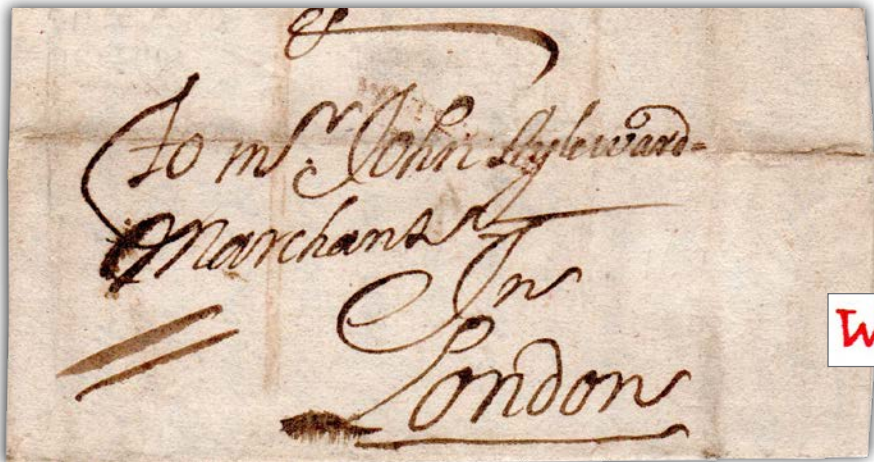 To Mr. John Ayleward
Marchant
In
London
W